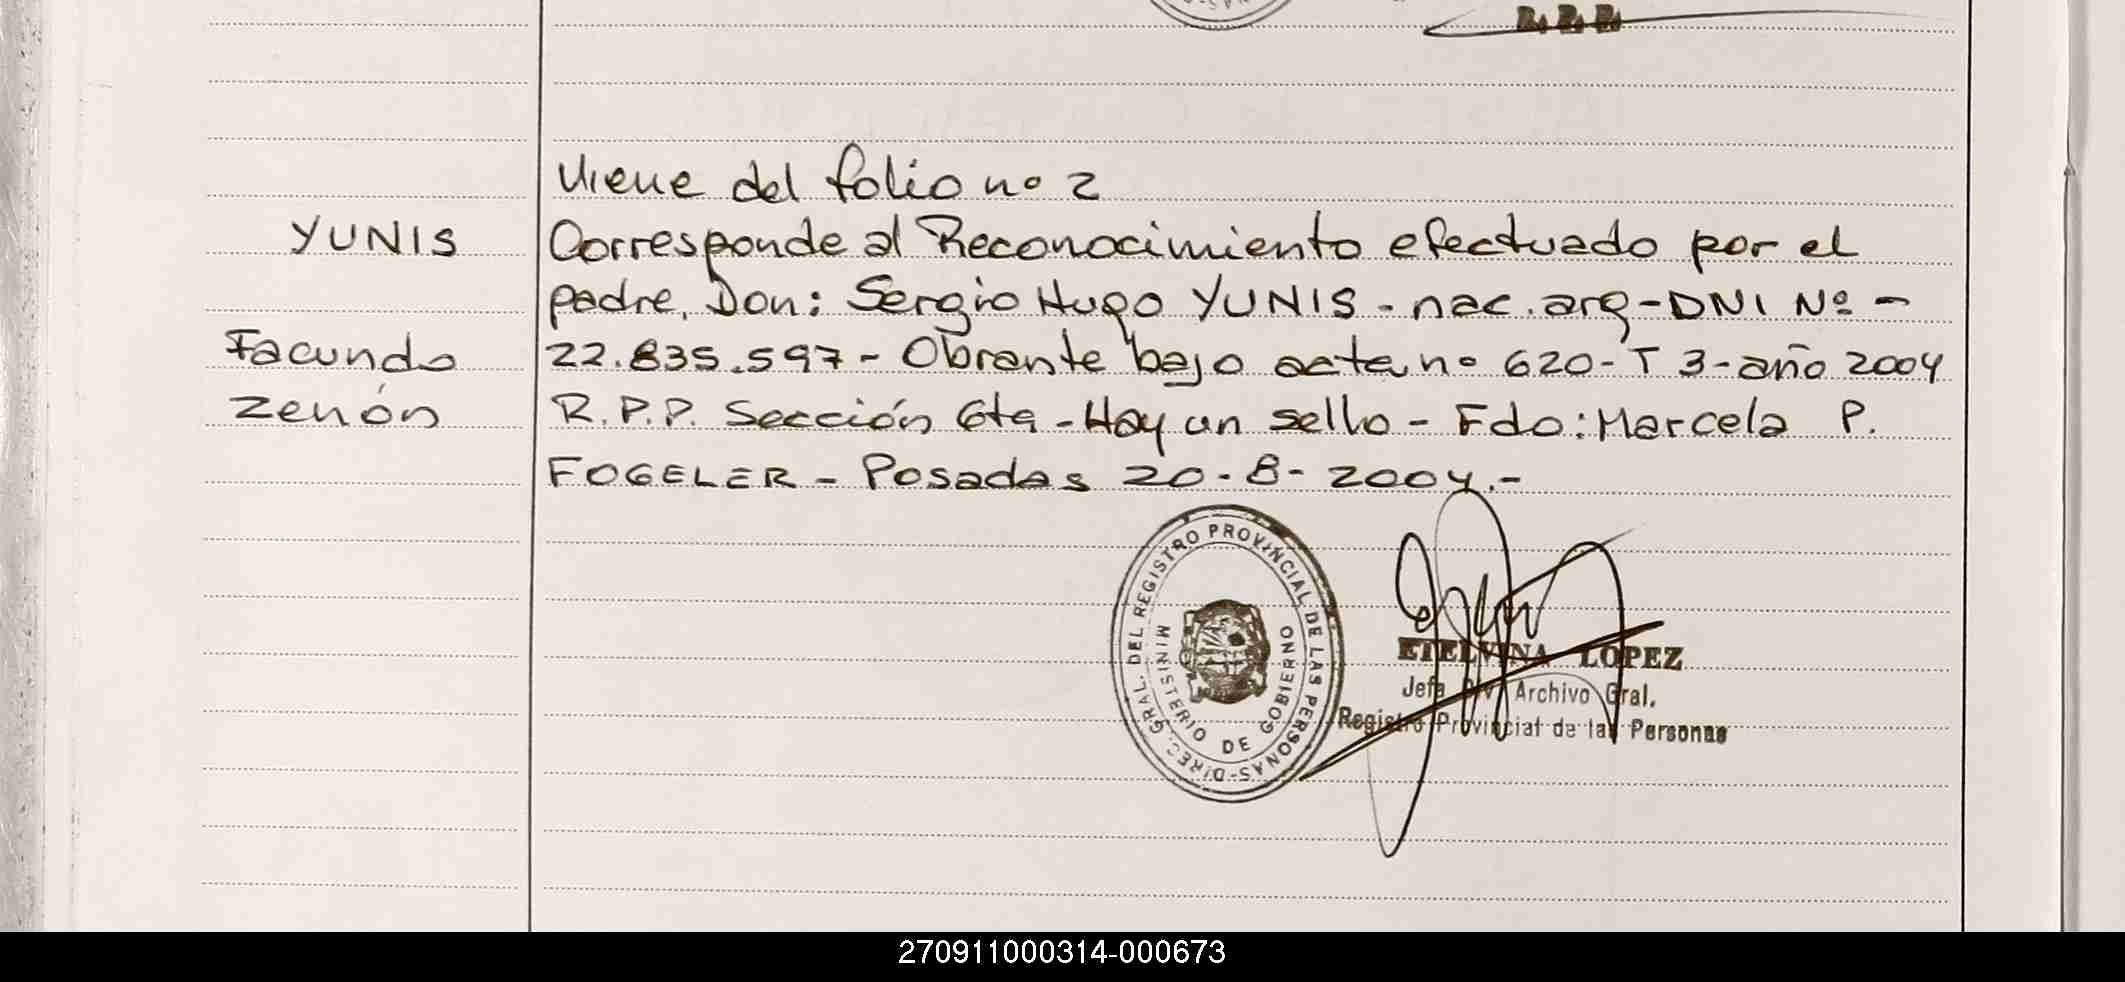 R. P. P.
Viene del folio nº 2
YUNIS
Corresponde al Reconocimiento efectuado por el
padre, Don: Sergio Hugo YUNIS - nac. arg - DNI Nº -
Facundo
22.835.597 - Obrante bajo acta nº 620 - T 3 - año 2004
Zenón
R.P.P. Sección 6ta - Hay un sello - Fdo: Marcela P.
FOGELER - Posadas 20-8-2004.-
DIREC. GRAL. DEL REGISTRO PROVINCIAL DE LAS PERSONAS
MINISTERIO DE GOBIERNO
ETELVINA LOPEZ
Jefa Div Archivo Gral.
Registro Provincial de las Personas
270911000314-000673